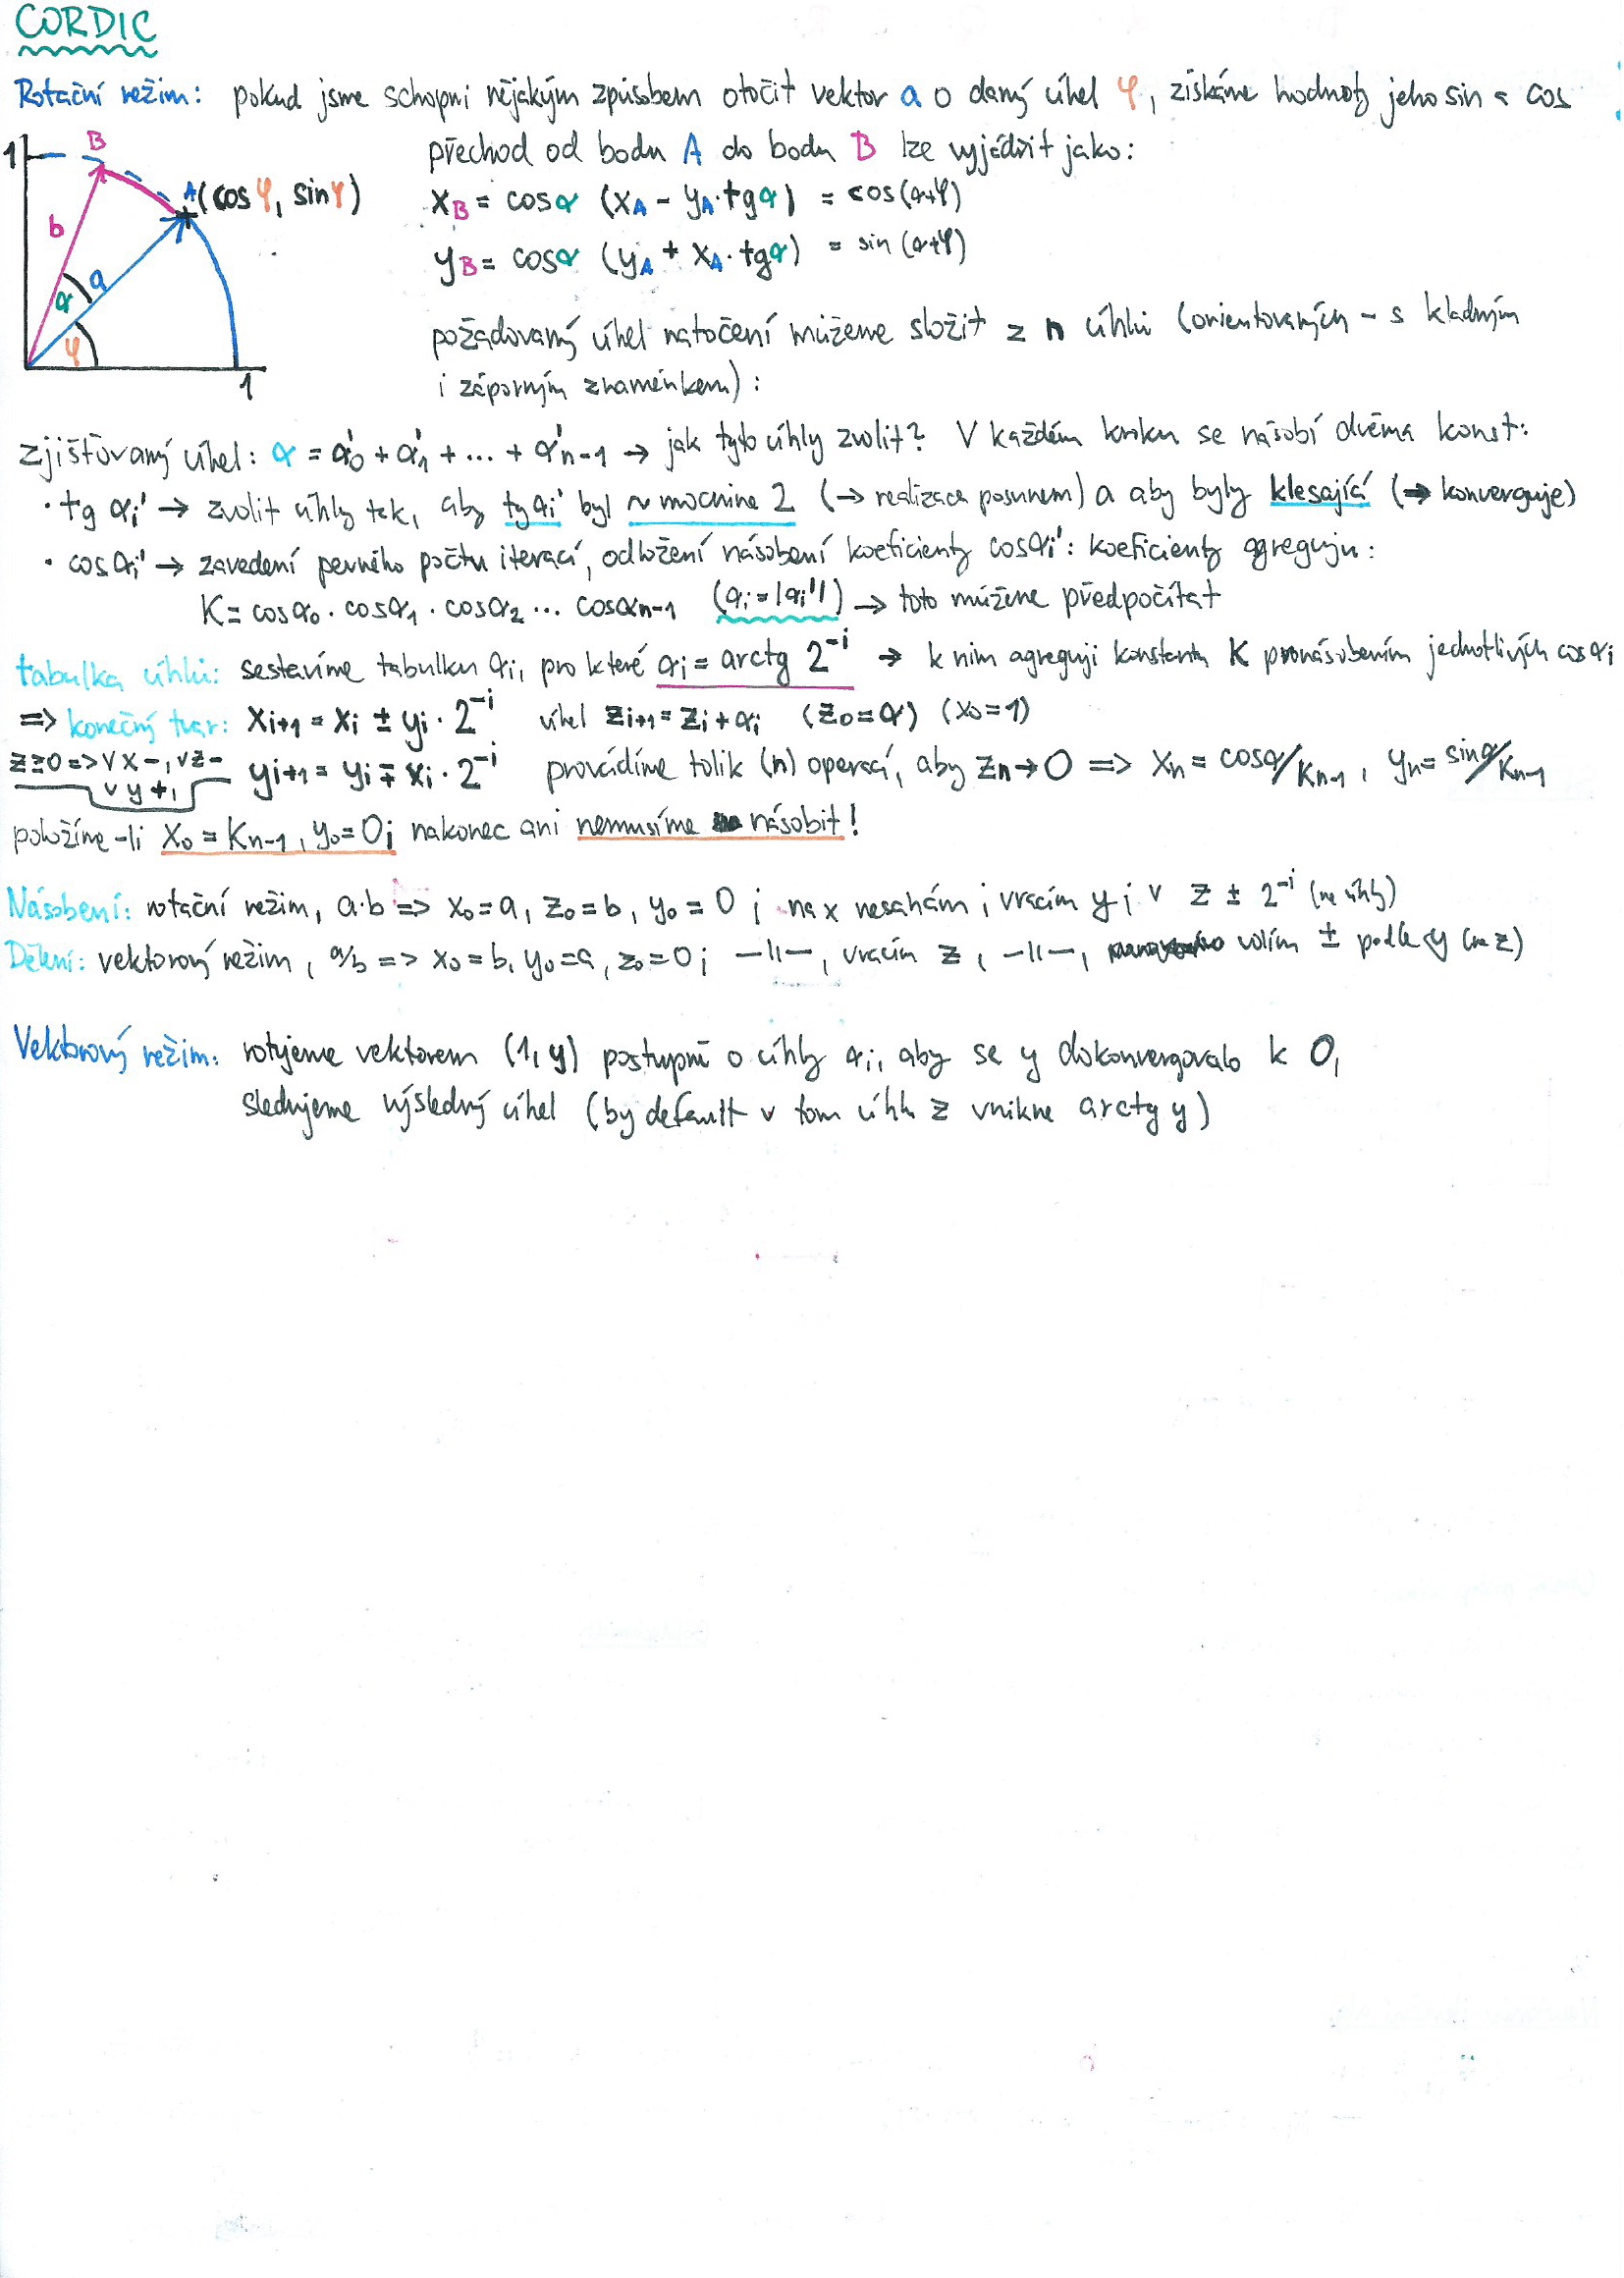 CORDIC
Rotační režim: pokud jsme schopni nějakým způsobem otočit vektor a o daný úhel φ, získáme hodnoty jeho sin a cos
přechod od bodu A do bodu B lze vyjádřit jako:
1 B A (cos φ, sin φ)
xB = cosα (xA - yA·tgα) = cos(α+φ)
b a α φ 1
yB = cosα (yA + xA·tgα) = sin(α+φ)
požadovaný úhel natočení můžeme složit z n úhlů (orientovaných - s kladným
i záporným znaménkem):
zjišťovaný úhel: α = α'0 + α'1 + ... + α'n-1 → jak tyto úhly zvolit? V každém kroku se násobí dvěma konst:
· tg αi' → zvolit úhly tak, aby tg αi' byl ~ mocnina 2 (→ realizace posunem) a aby byly klesající (→ konverguje)
· cos αi' → zavedení pevného počtu iterací, odložení násobení koeficienty cosαi': koeficienty agreguju:
K = cosα0 · cosα1 · cosα2 ... cosαn-1 (αi = |αi'|) → toto můžeme předpočítat
tabulka úhlů: sestavíme tabulku αi, pro které αi = arctg 2^-i → k nim agreguji konstantu K pronásobením jednotlivých cosαi
=> konečný tvar: xi+1 = xi ± yi · 2^-i úhel zi+1 = zi + αi (z0 = α) (x0 = 1)
z≥0 => v x -, v z - v y +, yi+1 = yi ∓ xi · 2^-i provádíme tolik (n) operací, aby zn → 0 => xn = cosα/Kn-1, yn = sinα/Kn-1
položíme-li x0 = Kn-1, y0 = 0; nakonec ani nemusíme násobit!
Násobení: rotační režim, a·b => x0 = a, z0 = b, y0 = 0; na x nesahám; vracím y; v z ± 2^-i (ne úhly)
Dělení: vektorový režim, a/b => x0 = b, y0 = a, z0 = 0; -||-, vracím z, -||-, volím ± podle y (ne z)
Vektorový režim: rotujeme vektorem (1, y) postupně o úhly αi, aby se y dokonvergovalo k 0,
sledujeme výsledný úhel (by default v tom úhlu z vnikne arctg y)